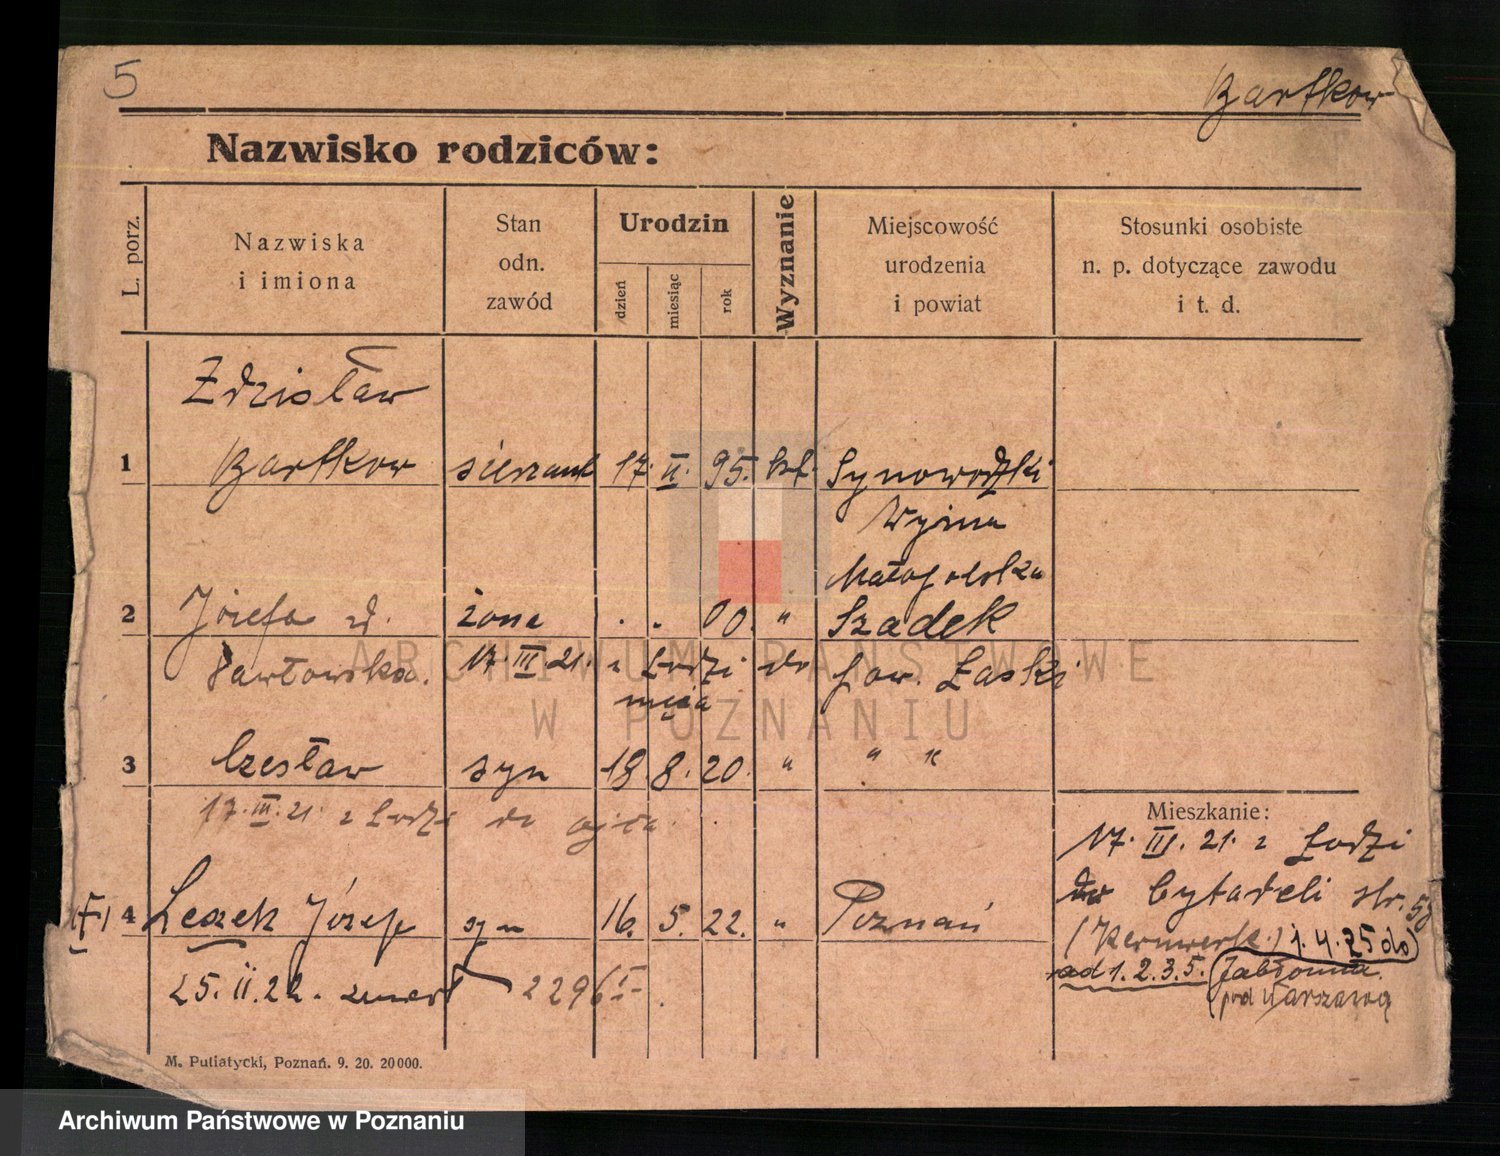 5
Bartkow
Nazwisko rodziców:
L. porz.
Nazwiska
i imiona
Stan
odn.
zawód
Urodzin
dzień
miesiąc
rok
Wyznanie
Miejscowość
urodzenia
i powiat
Stosunki osobiste
n. p. dotyczące zawodu
i t. d.
Zdzisław
1 Bartkow sierżant 17. II. 95. kat. Synowodzki
Wyżna
Małopolska
2 Józefa żona . . 00. " Szadek
Pawłowska. 17. III. 21. z Łodzi do pow. Łaski
męża
3 Czesław syn 18. 8. 20. " " "
17. III. 21. z Łodzi do ojca.
Mieszkanie:
17. III. 21. z Łodzi
do Cytadeli str. 58
(Kernwerk.) 1.4.25 do
ad 1. 2. 3. 5. Jabłonna.
pod Warszawą
4 Leszek Józef syn 16. 5. 22. " Poznań
25. II. 22. zmarł 2296
M. Putiatycki, Poznań. 9. 20. 20000.
ARCHIWUM PAŃSTWOWE
W POZNANIU
Archiwum Państwowe w Poznaniu